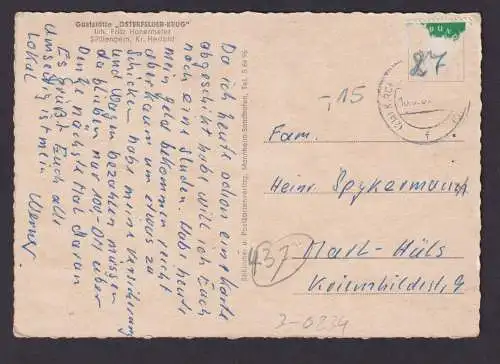 Gaststätte „OSTERFELDER-KRUG“
Inh. Fritz Hanenmeier
Südlengern, Kr. Herford
Da ich heute schon eine Karte
abgeschickt habe will ich Euch
noch eine senden. Habe heute
mein Geld bekommen reicht
aber kaum um etwas zu
schicken habe meine Versicherung
und Wagen bezahlen müssen
da blieben nur 100,- DM über
Denke nächste Mal daran
Es grüßt Euch alle
Umseitig ist mein
Lokal
Werner
Schöning u. Postkartenverlag, Mannheim-Sandhofen, Tel. 5 66 96
27
-,15
Fam.
Heinr Spykermann
Marl-Hüls
437
9
3-0234